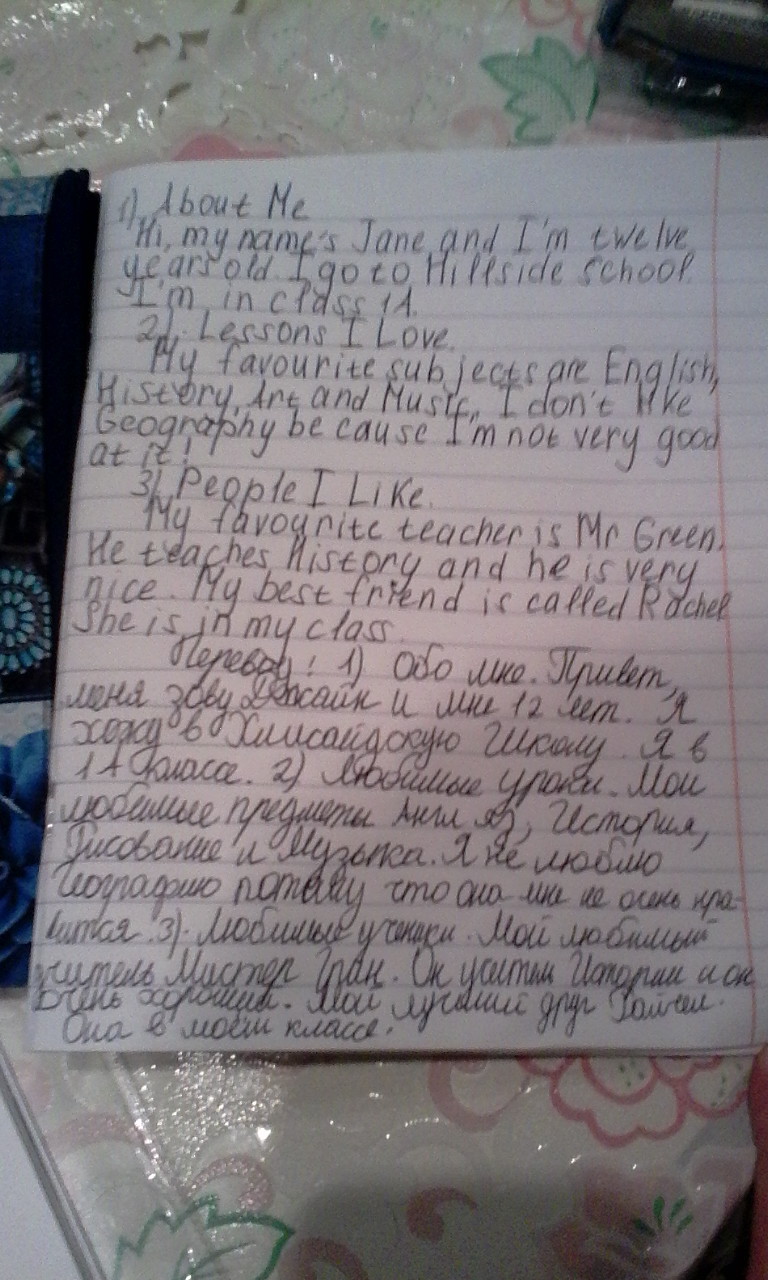 1). About Me
Hi, my name's Jane and I'm twelve
years old. I go to Hillside school.
I'm in class 1A.
2). Lessons I Love.
My favourite subjects are English,
History, Art and Music. I don't like
Geography because I'm not very good
at it!
3). People I Like.
My favourite teacher is Mr Green.
He teaches History and he is very
nice. My best friend is called Rachel
She is in my class.
Перевод: 1) Обо мне. Привет,
меня зову Джайн и мне 12 лет. Я
хожу в Хилисайдскую Школу. Я в
1А классе. 2) Любимые уроки. Мои
любимые предметы Англ яз, История,
Рисование и Музыка. Я не люблю
Географию потому что она мне не очень нра-
вится. 3). Любимые ученики. Мой любимый
учитель Мистер Гран. Он учитель Истории и он
очень хороший. Мой лучший друг Райчел.
Она в моём классе.